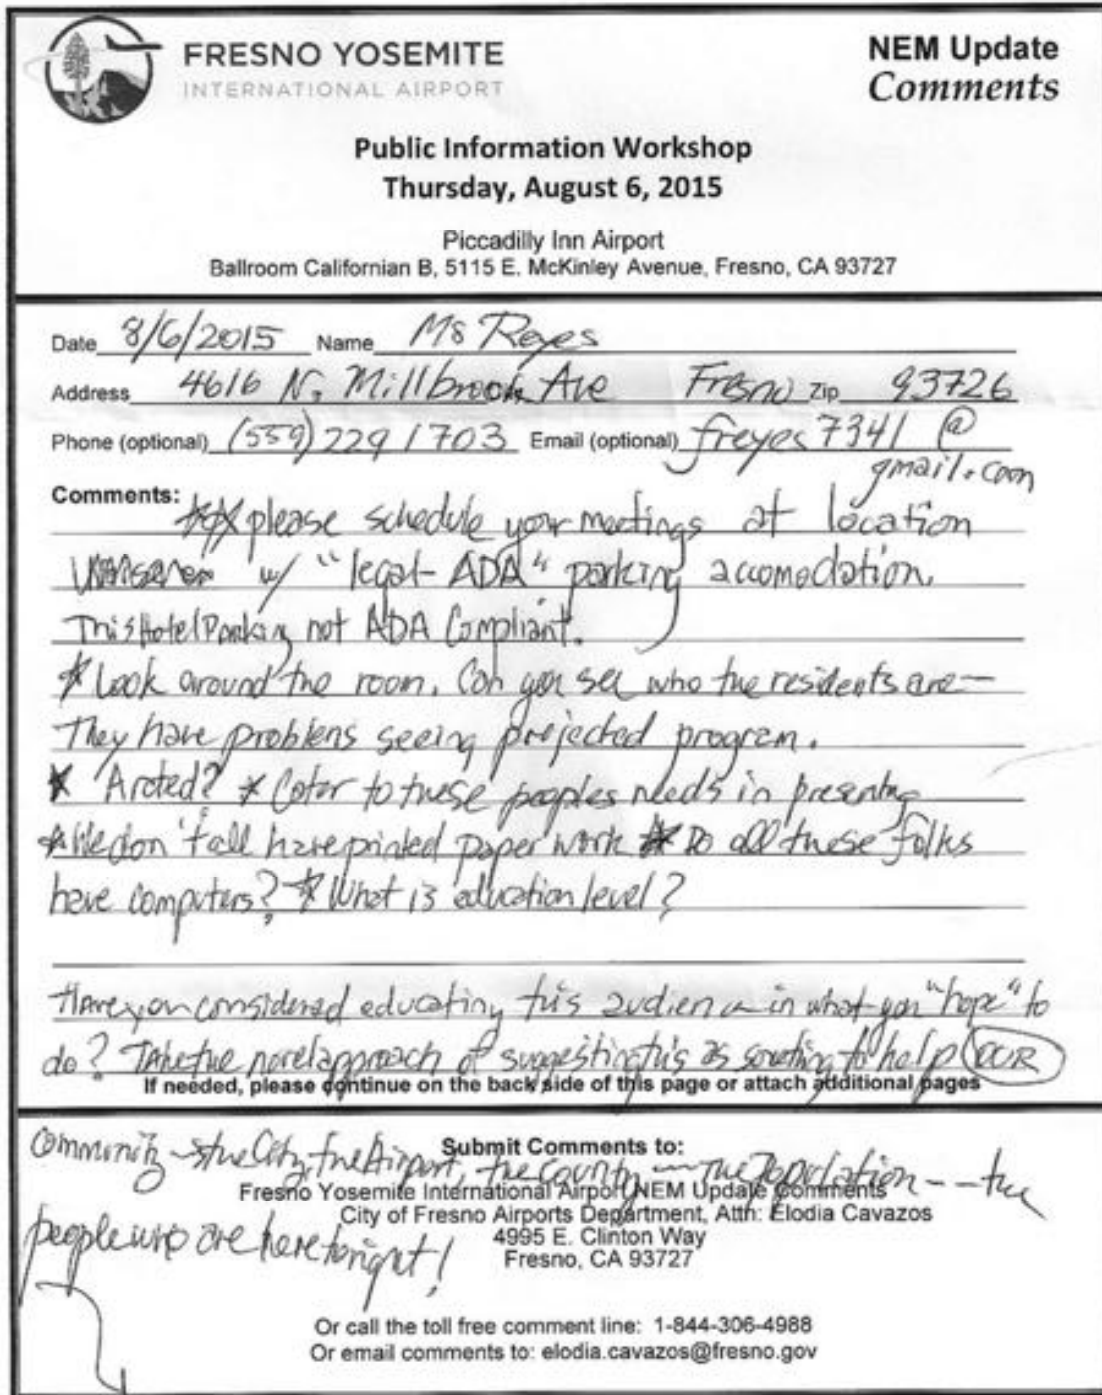 FRESNO YOSEMITE
INTERNATIONAL AIRPORT
NEM Update
Comments
Public Information Workshop
Thursday, August 6, 2015
Piccadilly Inn Airport
Ballroom Californian B, 5115 E. McKinley Avenue, Fresno, CA 93727
Date 8/6/2015 Name Ms Reyes
Address 4616 N. Millbrook Ave Fresno Zip 93726
Phone (optional) (559) 229 1703 Email (optional) freyes7341@
gmail.com
Comments:
*** please schedule your meetings at location
w/ "legal-ADA" parking accomodation.
This Hotel Parking not ADA Compliant.
* Look around the room. Can you see who the residents are—
They have problems seeing projected program.
* * Cater to these peoples needs in
* We don't all have printed paper work * Do all these folks
have computers? * What is education level?
Have you considered educating this audience in what you "hope" to
do? Take the novel approach of suggesting this as something to help OUR
If needed, please continue on the back side of this page or attach additional pages
Community - the City, the Airport, the County — The Population -- the
people who are here tonight!
Submit Comments to:
Fresno Yosemite International Airport NEM Update Comments
City of Fresno Airports Department, Attn: Elodia Cavazos
4995 E. Clinton Way
Fresno, CA 93727
Or call the toll free comment line: 1-844-306-4988
Or email comments to: elodia.cavazos@fresno.gov